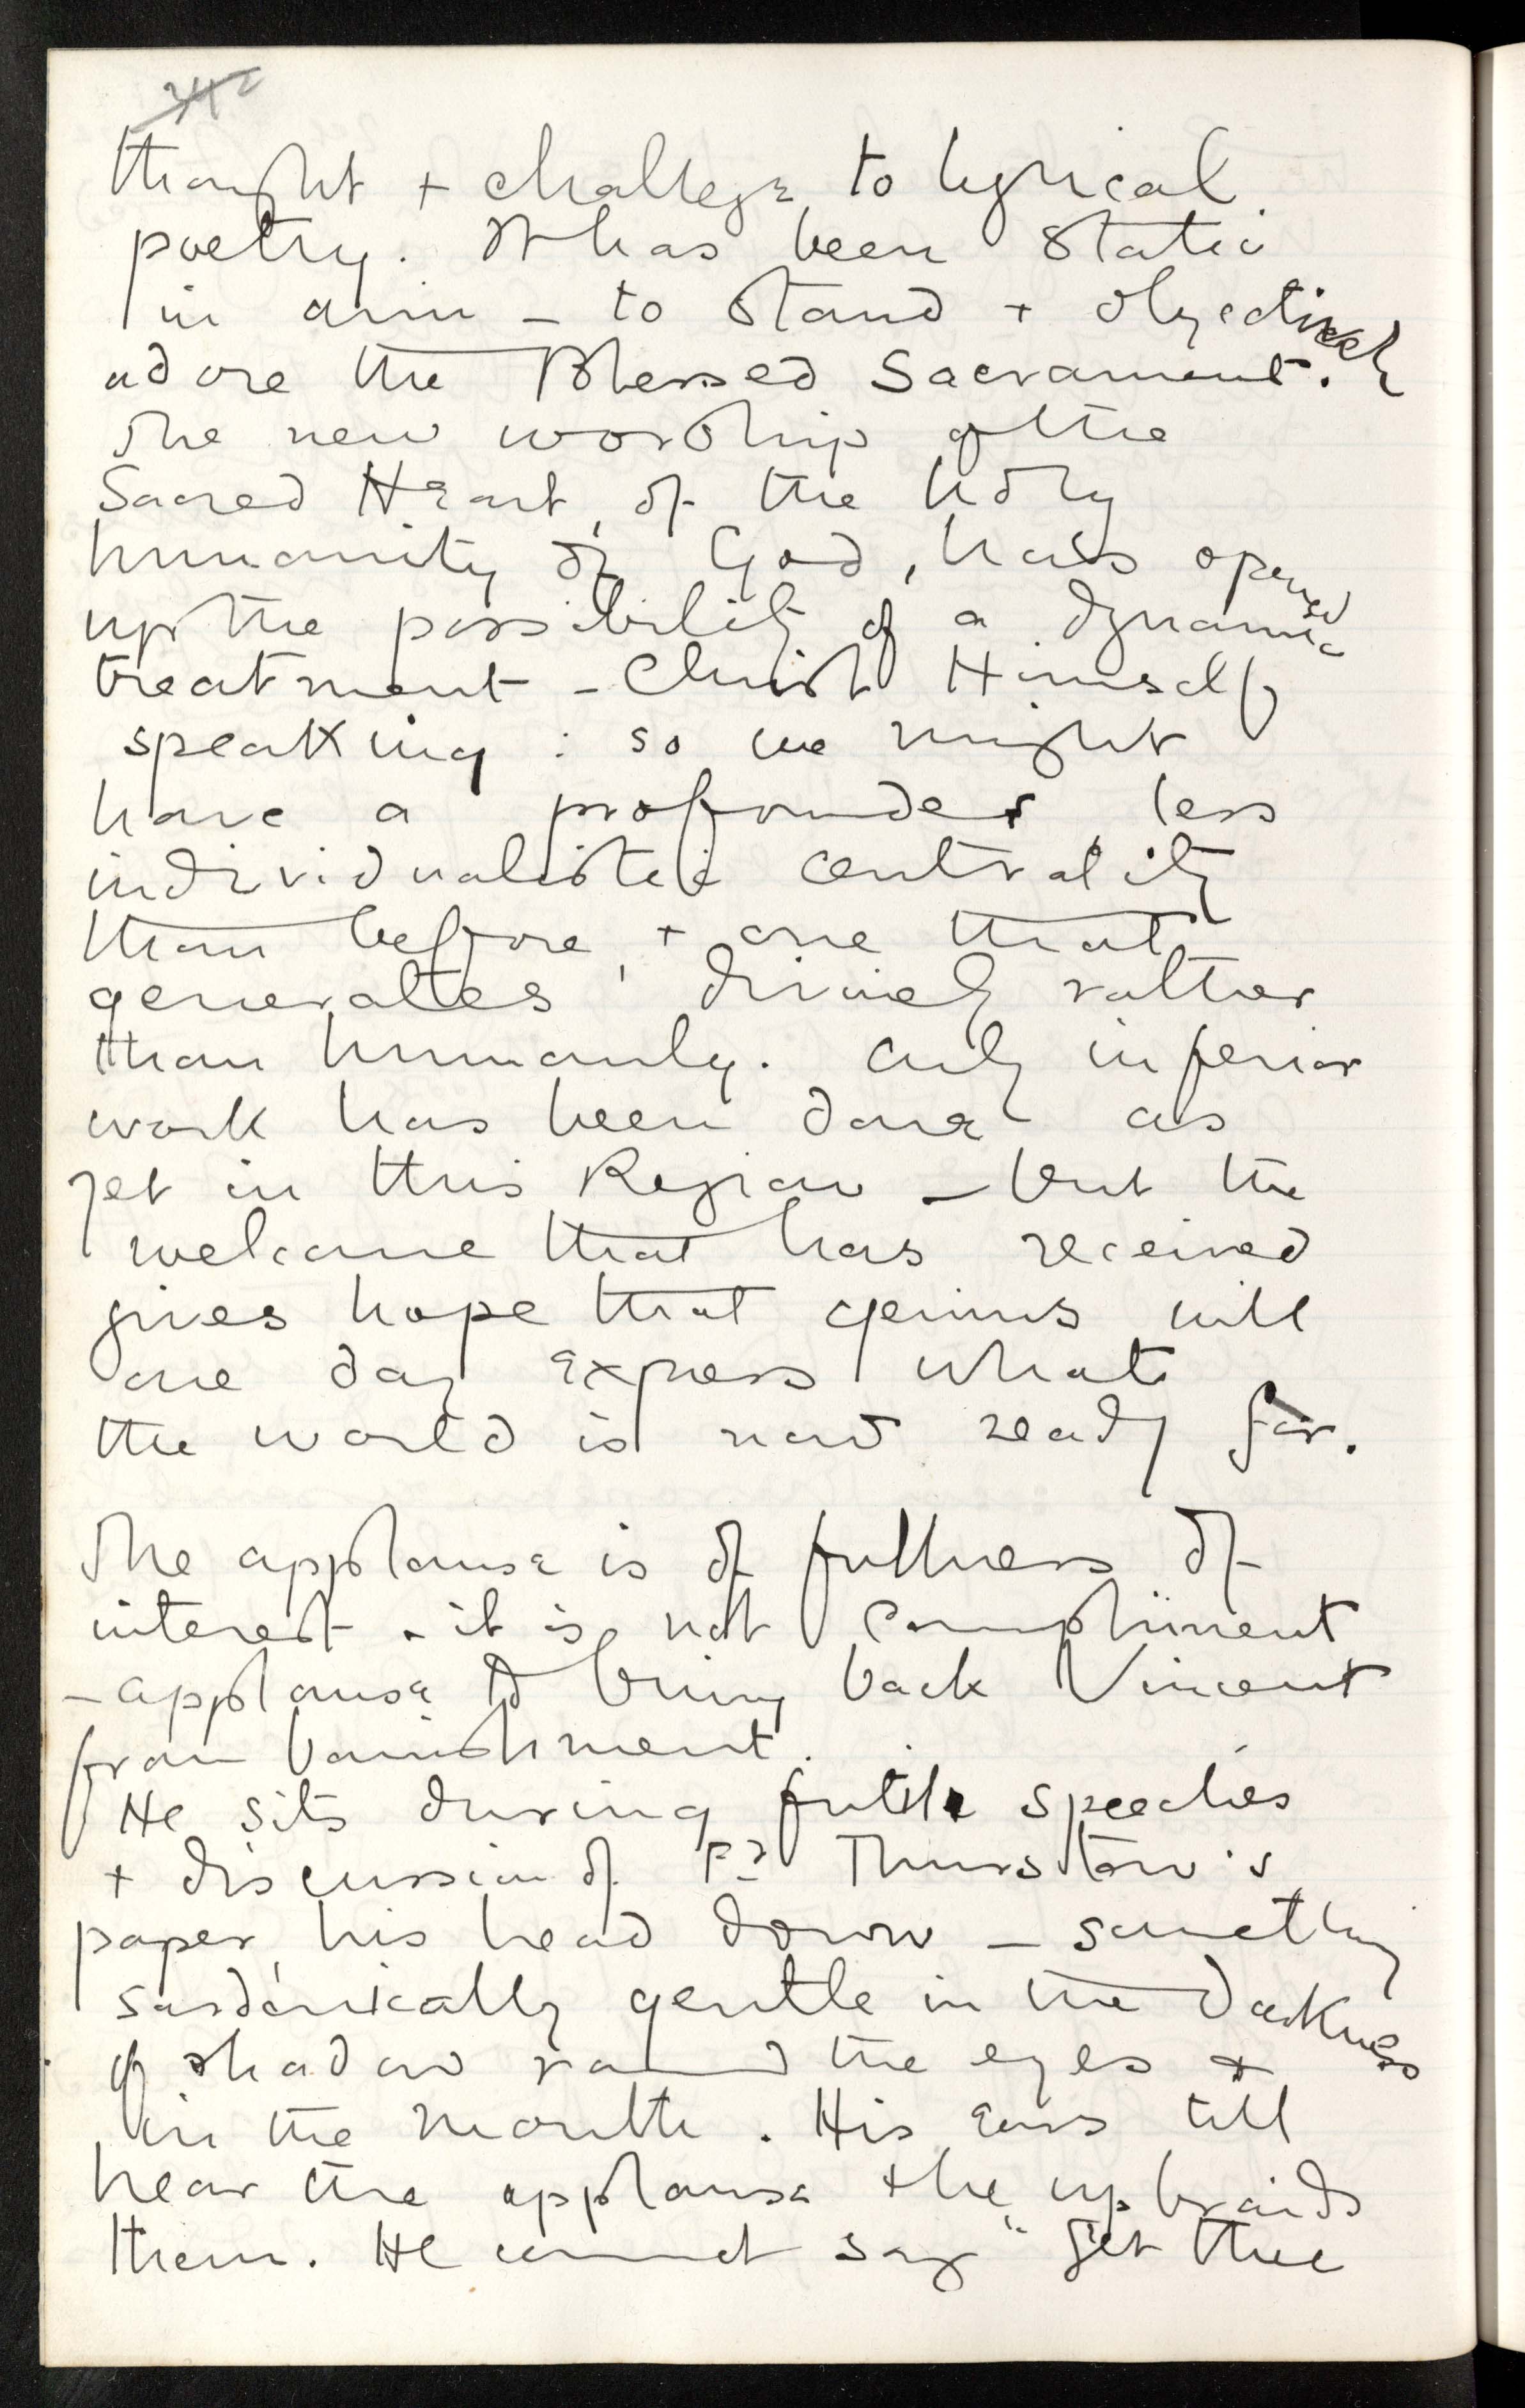 thought + challenge to lyrical
poetry. It has been static
in aim – to stand + objectively
adore the Blessed Sacrament.
The new worship of the
Sacred Heart, of the holy
humanity of God, has opened
up the possibility of a dynamic
treatment – Christ Himself
speaking : so we might
have a profounder less
individualistic centrality
than before, + one that
generates divinely rather
than humanly. Only inferior
work has been done as
yet in this Region – but the
welcome that has received
gives hope that genius will
one day express what
the world is now ready for.
The applause is of fullness of
interest – it is not compliment
– applause to bring back Vincent
from banishment.
He sits during futile speeches
+ discussion of Fr Thurston's
paper, his head down – something
sardonically gentle in the darkness
of shadow round the eyes +
in the mouth. His ears still
hear the applause + he upbraids
them. He cannot say "Get thee